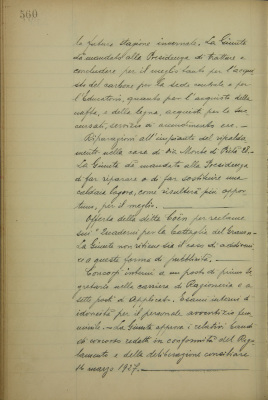 560
la futura stagione invernale. La Giunta
dà mandato alla Presidenza di trattare e
concludere per il meglio tanto per l'acqui
sto del carbone per la sede centrale e per
l'Educatorio, quanto per l'acquisto della
nafta, e della legna, acquisti per le suc
cursali, servizio di
Riparazioni all'impianto del riscalda
mento nella casa di Via Monte di Pietà
La Giunta dà mandato alla Presidenza
di far riparare o di far sostituire una
caldaia logora, come risulterà più oppor
tuno, per il meglio.
Offerta della ditta Coen per reclame
sui "Quaderni per la battaglia del Grano".
La Giunta non ritiene sia il caso di addiveni
re a questa forma di pubblicità.
Concorsi interni a un posto di primo Se
gretario nella carriera di Ragioneria e a
sette posti di Applicato. Esami interni di
idoneità per il personale avventizio fem
minile. - La Giunta approva i relativi bandi
di concorso redatti in conformità del Rego
lamento e della deliberazione consigliare
14 marzo 1927.